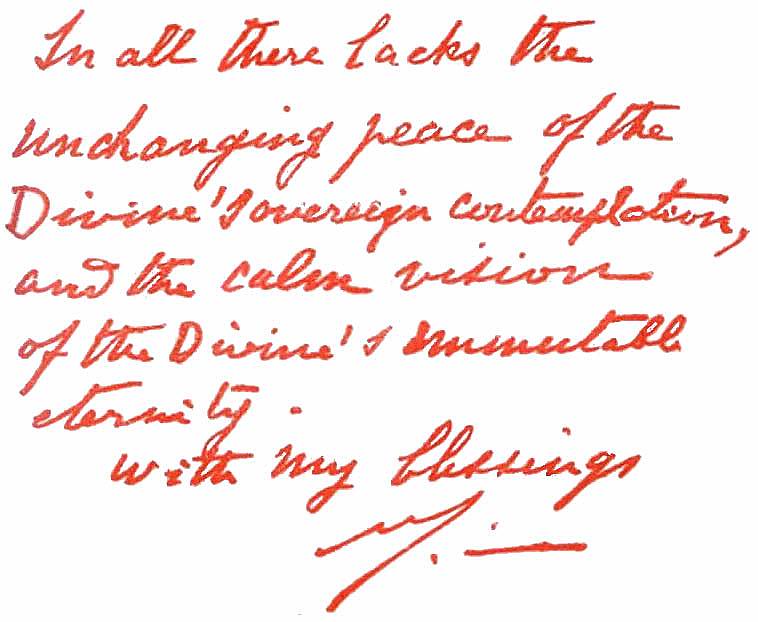 In all there lacks the
unchanging peace of the
Divine's sovereign contemplation,
and the calm vision
of the Divine's immutable
eternity.
with my blessings